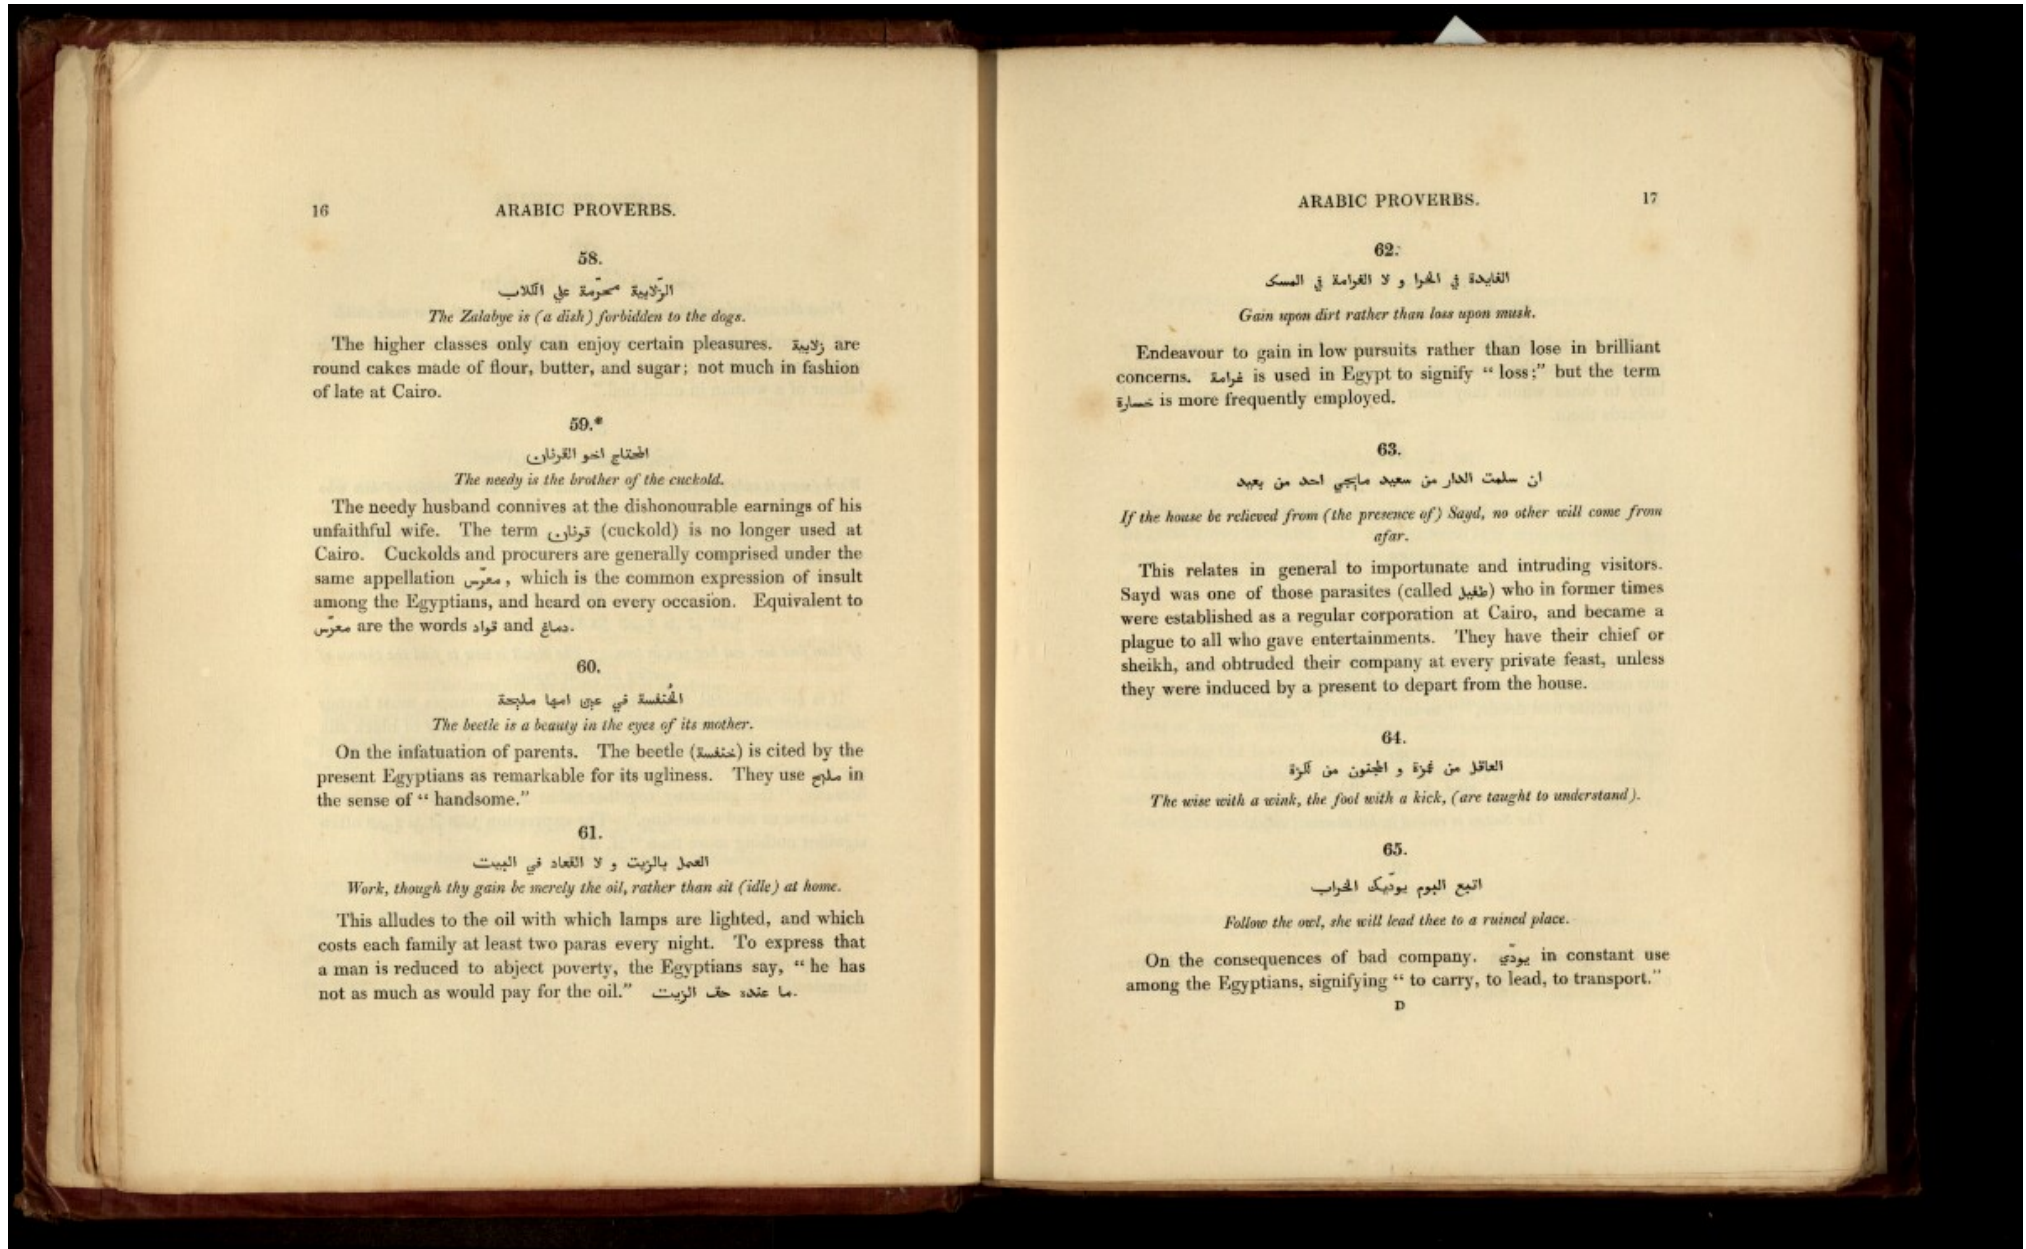 16
ARABIC PROVERBS.
58.
الزّلابية محرّمة علي الكلاب
The Zalabye is (a dish) forbidden to the dogs.
The higher classes only can enjoy certain pleasures. زلابية are
round cakes made of flour, butter, and sugar; not much in fashion
of late at Cairo.
59.*
المحتاج اخو القرنان
The needy is the brother of the cuckold.
The needy husband connives at the dishonourable earnings of his
unfaithful wife. The term قرنان (cuckold) is no longer used at
Cairo. Cuckolds and procurers are generally comprised under the
same appellation معرّس, which is the common expression of insult
among the Egyptians, and heard on every occasion. Equivalent to
معرّس are the words قواد and دماغ.
60.
الخُنفسة في عين امها مليحة
The beetle is a beauty in the eyes of its mother.
On the infatuation of parents. The beetle (خنفسة) is cited by the
present Egyptians as remarkable for its ugliness. They use مليح in
the sense of “ handsome.”
61.
العمل بالزيت و لا القعاد في البيت
Work, though thy gain be merely the oil, rather than sit (idle) at home.
This alludes to the oil with which lamps are lighted, and which
costs each family at least two paras every night. To express that
a man is reduced to abject poverty, the Egyptians say, “ he has
not as much as would pay for the oil.” ما عنده حق الزيت.
ARABIC PROVERBS.
17
62.
الفايدة في الخرا و لا الغرامة في المسك
Gain upon dirt rather than loss upon musk.
Endeavour to gain in low pursuits rather than lose in brilliant
concerns. غرامة is used in Egypt to signify “ loss;” but the term
خسارة is more frequently employed.
63.
ان سلمت الدار من سعيد مايجي احد من بعيد
If the house be relieved from (the presence of) Sayd, no other will come from
afar.
This relates in general to importunate and intruding visitors.
Sayd was one of those parasites (called طفيل) who in former times
were established as a regular corporation at Cairo, and became a
plague to all who gave entertainments. They have their chief or
sheikh, and obtruded their company at every private feast, unless
they were induced by a present to depart from the house.
64.
العاقل من غمزة و المجنون من لكزة
The wise with a wink, the fool with a kick, (are taught to understand).
65.
اتبع البوم يودّيك الخراب
Follow the owl, she will lead thee to a ruined place.
On the consequences of bad company. يودّي in constant use
among the Egyptians, signifying “ to carry, to lead, to transport.”
D